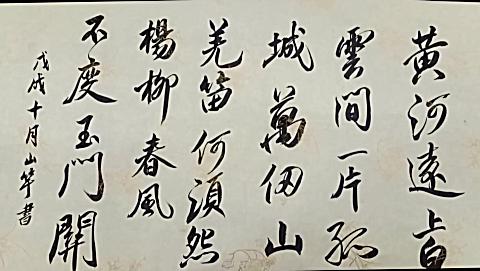 黄河遠上白
雲間一片孤
城萬仞山
羌笛何須怨
楊柳春風
不度玉門關
戊戌十月山筆書